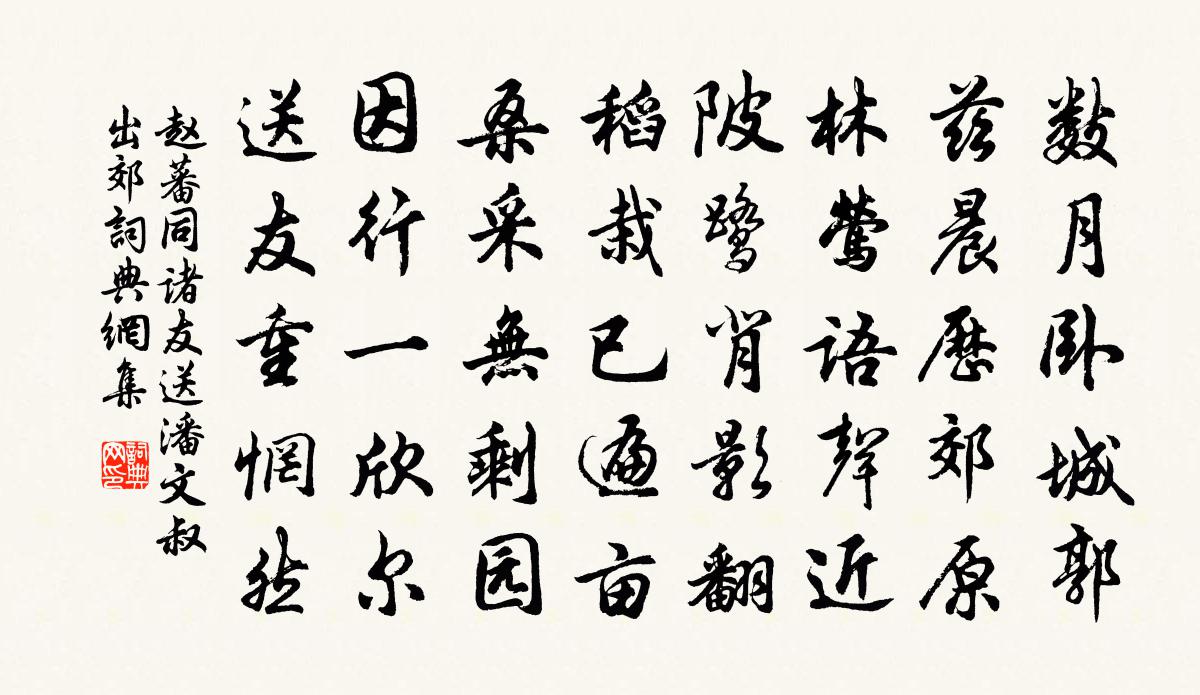 数月卧城郭
兹晨历郊原
林莺语声近
陂鹭肖影翻
稻栽已遍亩
桑采無剩园
因行一欣尔
送友重惘然
赵蕃同诸友送潘文叔
出郊詞典網集
詞典
网印